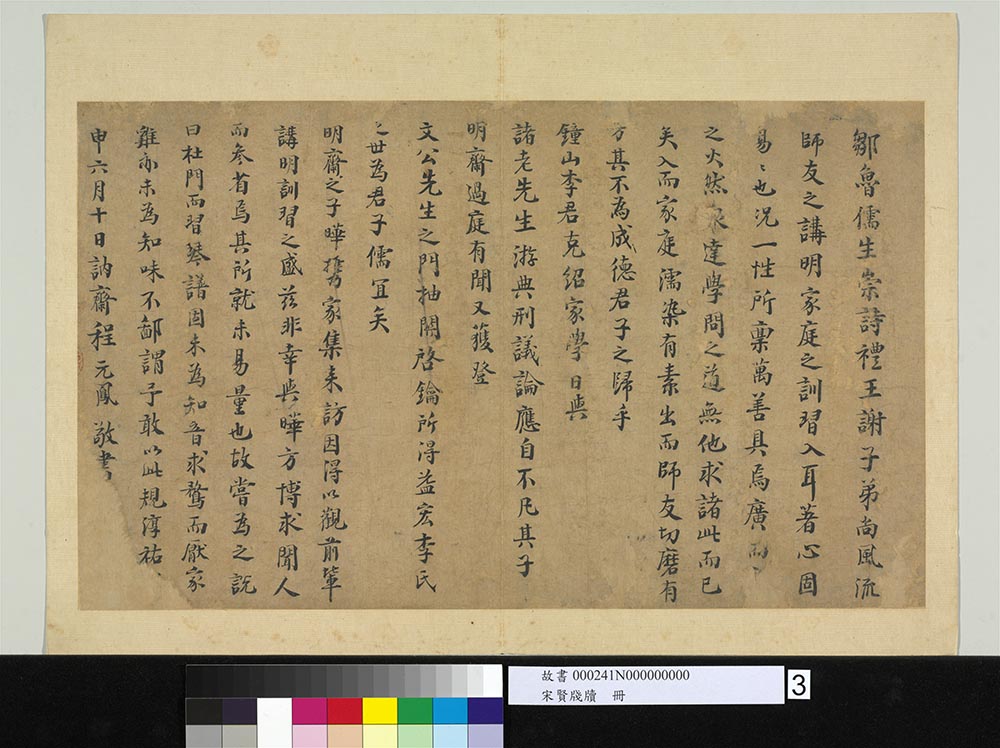 鄒魯儒生崇詩禮王謝子弟尚風流
師友之講明家庭之訓習入耳著心固
易〻也况一性所稟萬善具焉廣而
之火然泉達學問之道無他求諸此而已
矣入而家庭濡染有素出而師友切磨有
方其不為成德君子之歸乎
鐘山李君克紹家學日與
諸老先生游典刑議論應自不凡其子
明齋過庭有聞又獲登
文公先生之門抽關啓鑰所得益宏李氏
之世為君子儒宜矣
明齋之子曄攜家集来訪因得以觀前輩
講明訓習之盛兹非幸與曄方博求聞人
而參省焉其所就未易量也故嘗為之說
曰杜門而習琴譜固未為知音求鶩而厭家
雞亦未為知味不鄙謂予敢以此規淳祐
申六月十日訥齋程元鳳敬書
故書 000241N000000000
宋賢牋牘 冊
3